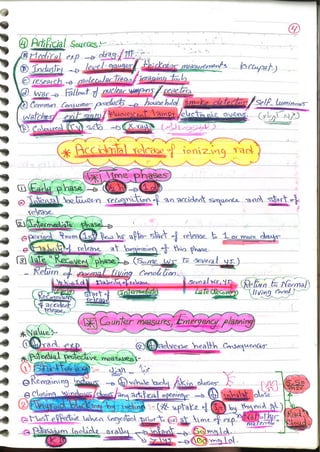 4
④ Artificial Sources:-
ⓐ Medical exp → diag / ttt
ⓑ Industry → level gauges / thickness measurements
ⓒ research → molecular trans / imaging tools
ⓓ War → Fallout of nuclear weapons / reactors
ⓔ Common Consumer products → household smoke detectors / Self Luminous
watches / exit signs / fluorescent lamps / electronic ovens
ⓕ Coloured TV sets → X rad
* Accidental release of ionizing rad
* time phases
1 Early phase →
⊙ Interval between recognition of an accident sequence and start of
release.
2 Intermediate phase →
⊙ period From 1st Few hs after start of release to 1 or more days
⊙ Majority of release at beginning of this phase
3 late "Recovery" phase → (Some WS to several ys.)
- Return of normal living condition.
start of release
intermediate
late recovery
(Return to Normal living cond!)
Recognition of accident release
* Counter measures, Emergency planning
* Value:-
① rad exp ② adverse health consequences
* Potential protective measures:-
① Sheltering
⊙ Remaining indoors → whole body / skin doses
⊙ Closing windows / doors / any artificial openings → inhalat. dose
② Thyroid blocking by iodine: uptake of by thyroid gl.
⊙ Most effective when ingested prior to or at time of exp.
⊙ Potassium iodide orally → infant → 50 mg/d.
100 mg/d.